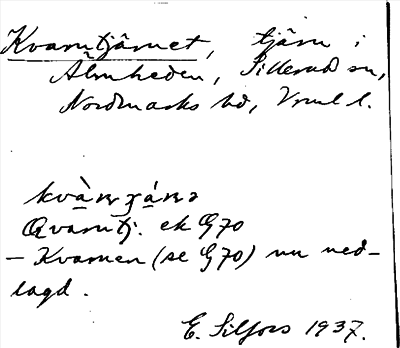 Kvarntjärnet, tjärn i
Älmheden, Sillerud sn,
Nordmarks hd, Vrml l.
kvὰ̱ṇɟá̱ṇə
Qvarntj. ek G70
– Kvarnen (se G70) nu ned-
lagd.
E. Silfors 1937.